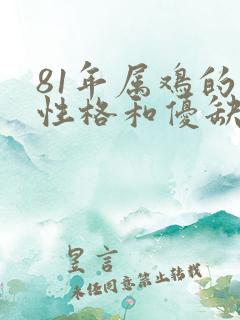 81年属鸡的
性格和优缺
呈言
未经同意禁止转载